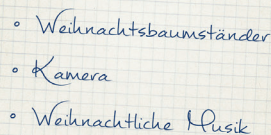 • Weihnachtsbaumständer
• Kamera
• Weihnachtliche Musik